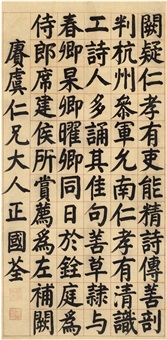 闕疑仁孝有吏能精詩傳善剖
判杭州參軍允南仁孝有清識
工詩人多誦其佳句善草隸與
春卿杲卿曜卿同日於銓庭為
侍郎席建侯所賞薦為左補闕
賡虞仁兄大人正國荃